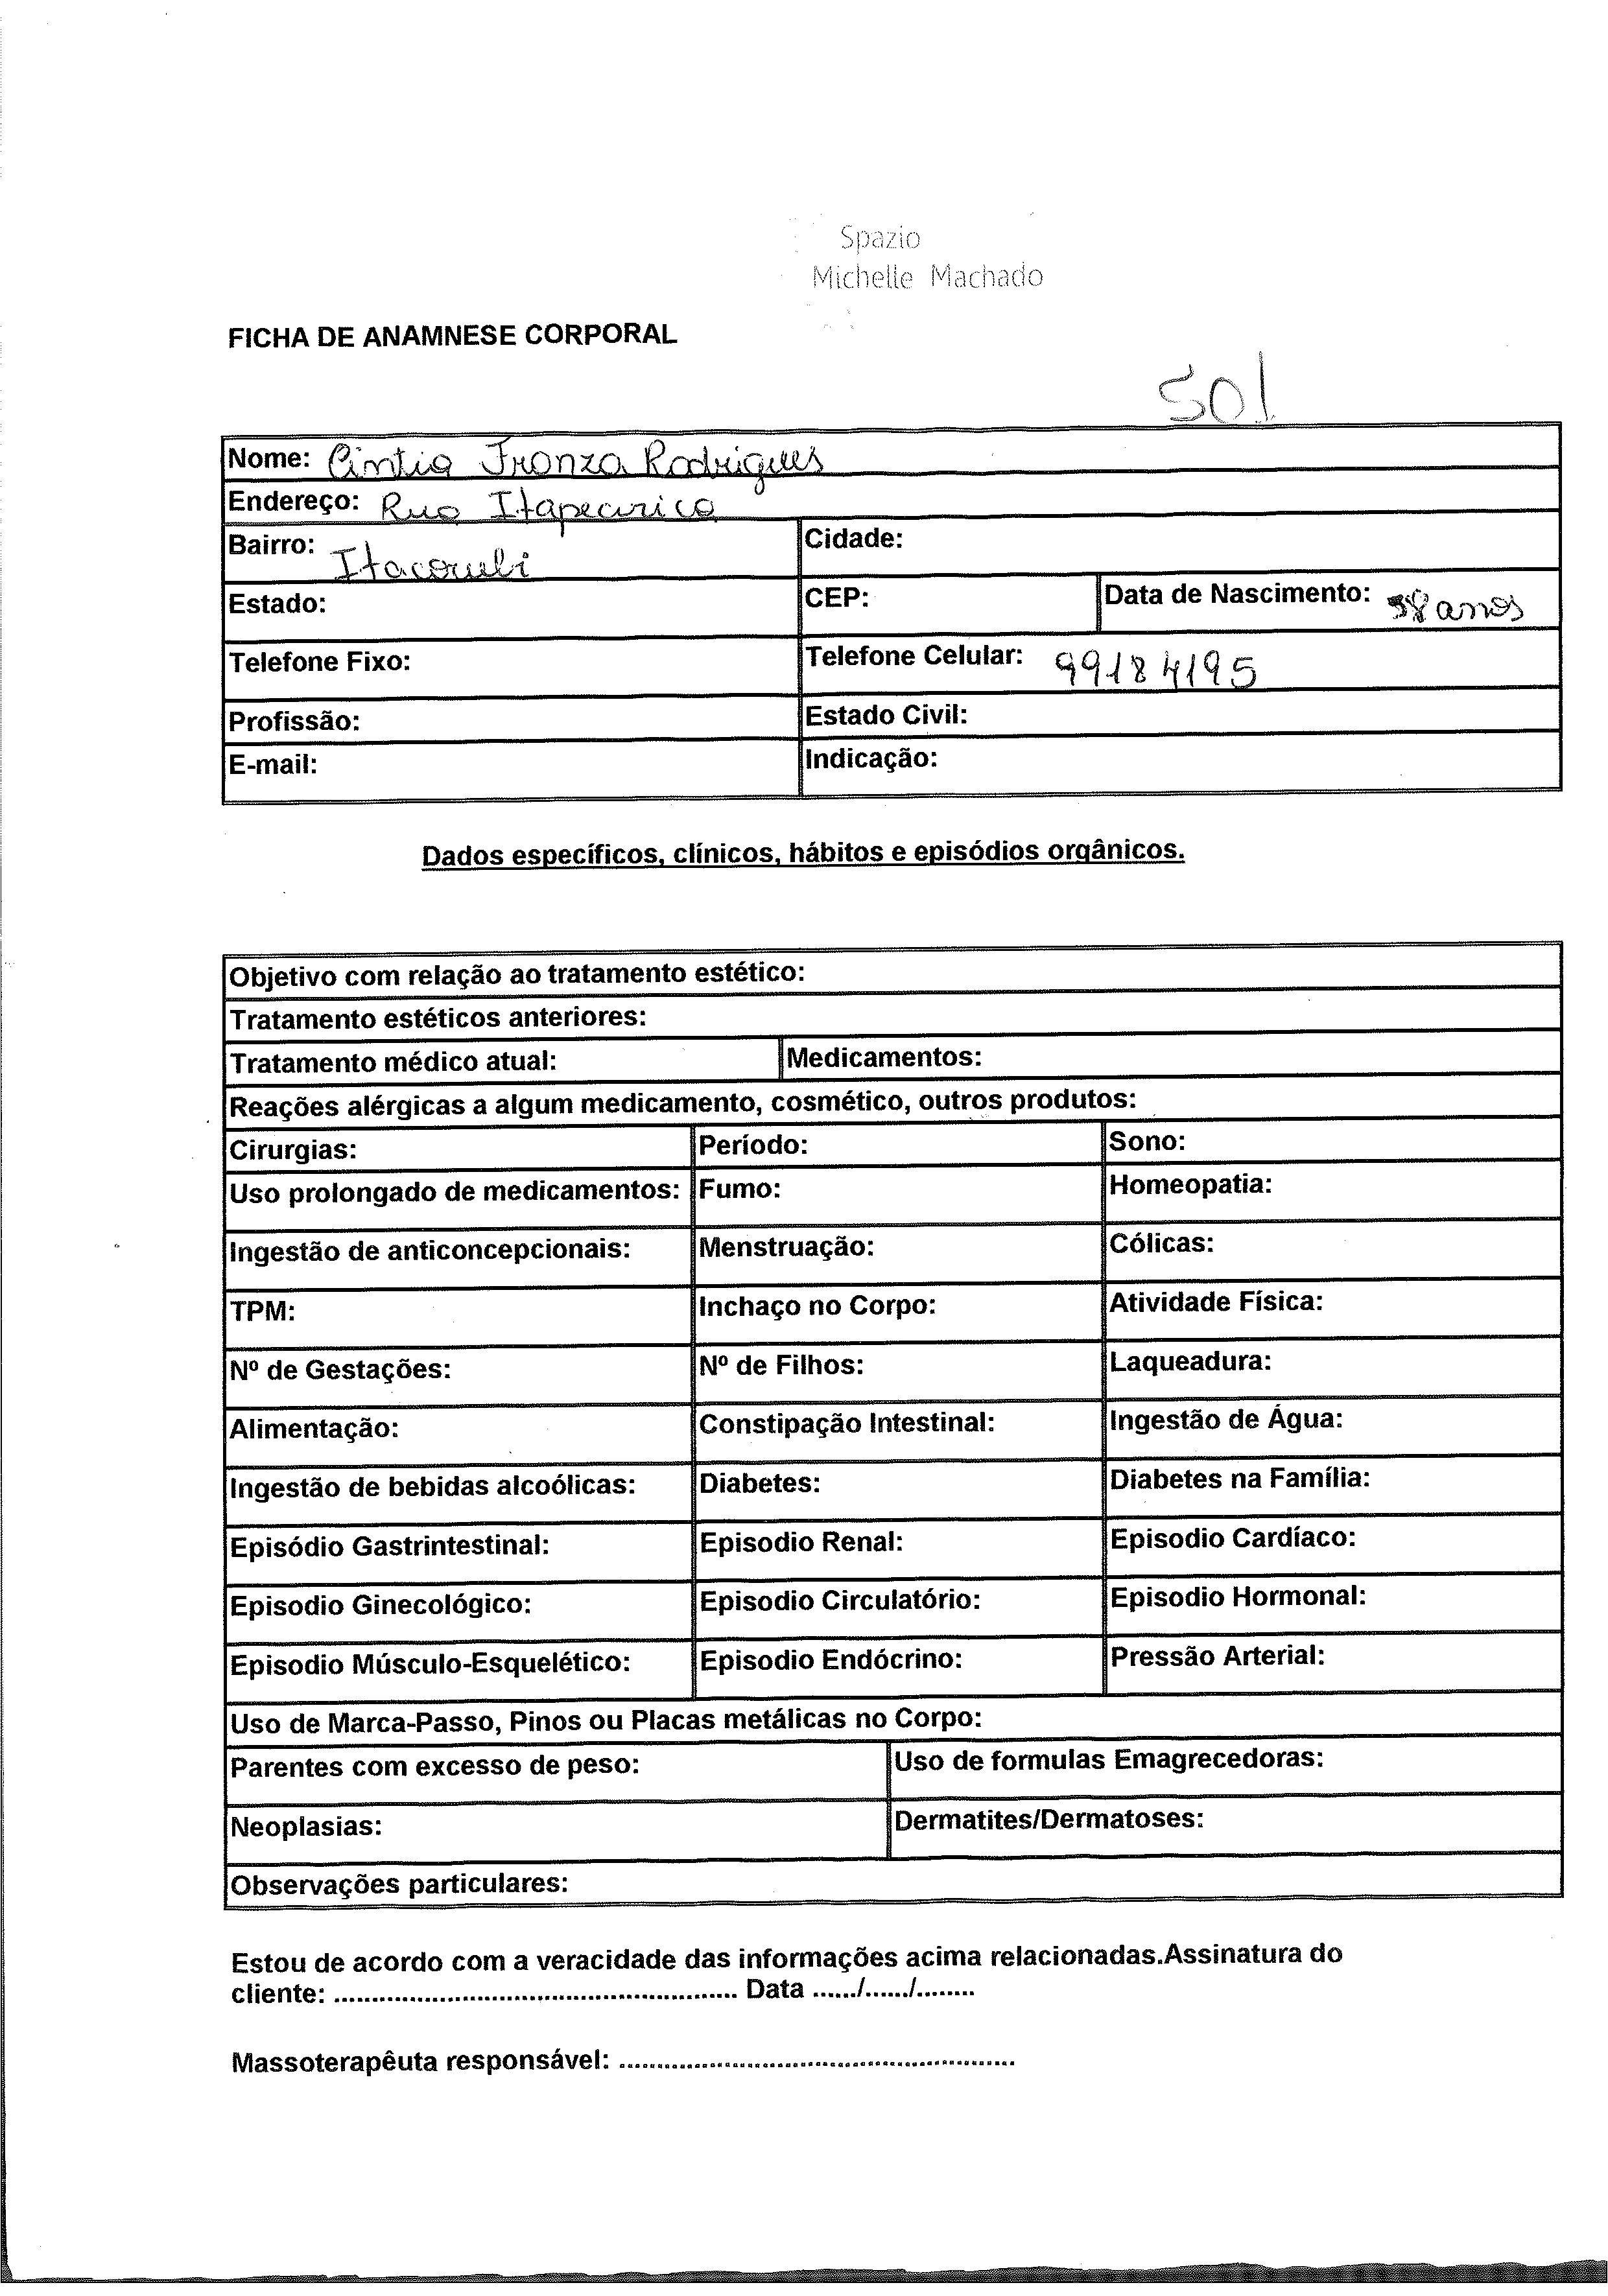 Spazio
Michelle Machado
FICHA DE ANAMNESE CORPORAL
501
Nome: Cintia Fronza Rodrigues
Endereço: Rua Itapecirica
Bairro: Itacorubi
Cidade:
Estado:
CEP:
Data de Nascimento: 38 anos
Telefone Fixo:
Telefone Celular: 99184195
Profissão:
Estado Civil:
E-mail:
Indicação:
Dados específicos, clínicos, hábitos e episódios orgânicos.
Objetivo com relação ao tratamento estético:
Tratamento estéticos anteriores:
Tratamento médico atual:
Medicamentos:
Reações alérgicas a algum medicamento, cosmético, outros produtos:
Cirurgias:
Período:
Sono:
Uso prolongado de medicamentos:
Fumo:
Homeopatia:
Ingestão de anticoncepcionais:
Menstruação:
Cólicas:
TPM:
Inchaço no Corpo:
Atividade Física:
Nº de Gestações:
Nº de Filhos:
Laqueadura:
Alimentação:
Constipação Intestinal:
Ingestão de Água:
Ingestão de bebidas alcoólicas:
Diabetes:
Diabetes na Família:
Episódio Gastrintestinal:
Episodio Renal:
Episodio Cardíaco:
Episodio Ginecológico:
Episodio Circulatório:
Episodio Hormonal:
Episodio Músculo-Esquelético:
Episodio Endócrino:
Pressão Arterial:
Uso de Marca-Passo, Pinos ou Placas metálicas no Corpo:
Parentes com excesso de peso:
Uso de formulas Emagrecedoras:
Neoplasias:
Dermatites/Dermatoses:
Observações particulares:
Estou de acordo com a veracidade das informações acima relacionadas.Assinatura do
cliente: ...................................................... Data ....../....../........
Massoterapêuta responsável: .....................................................